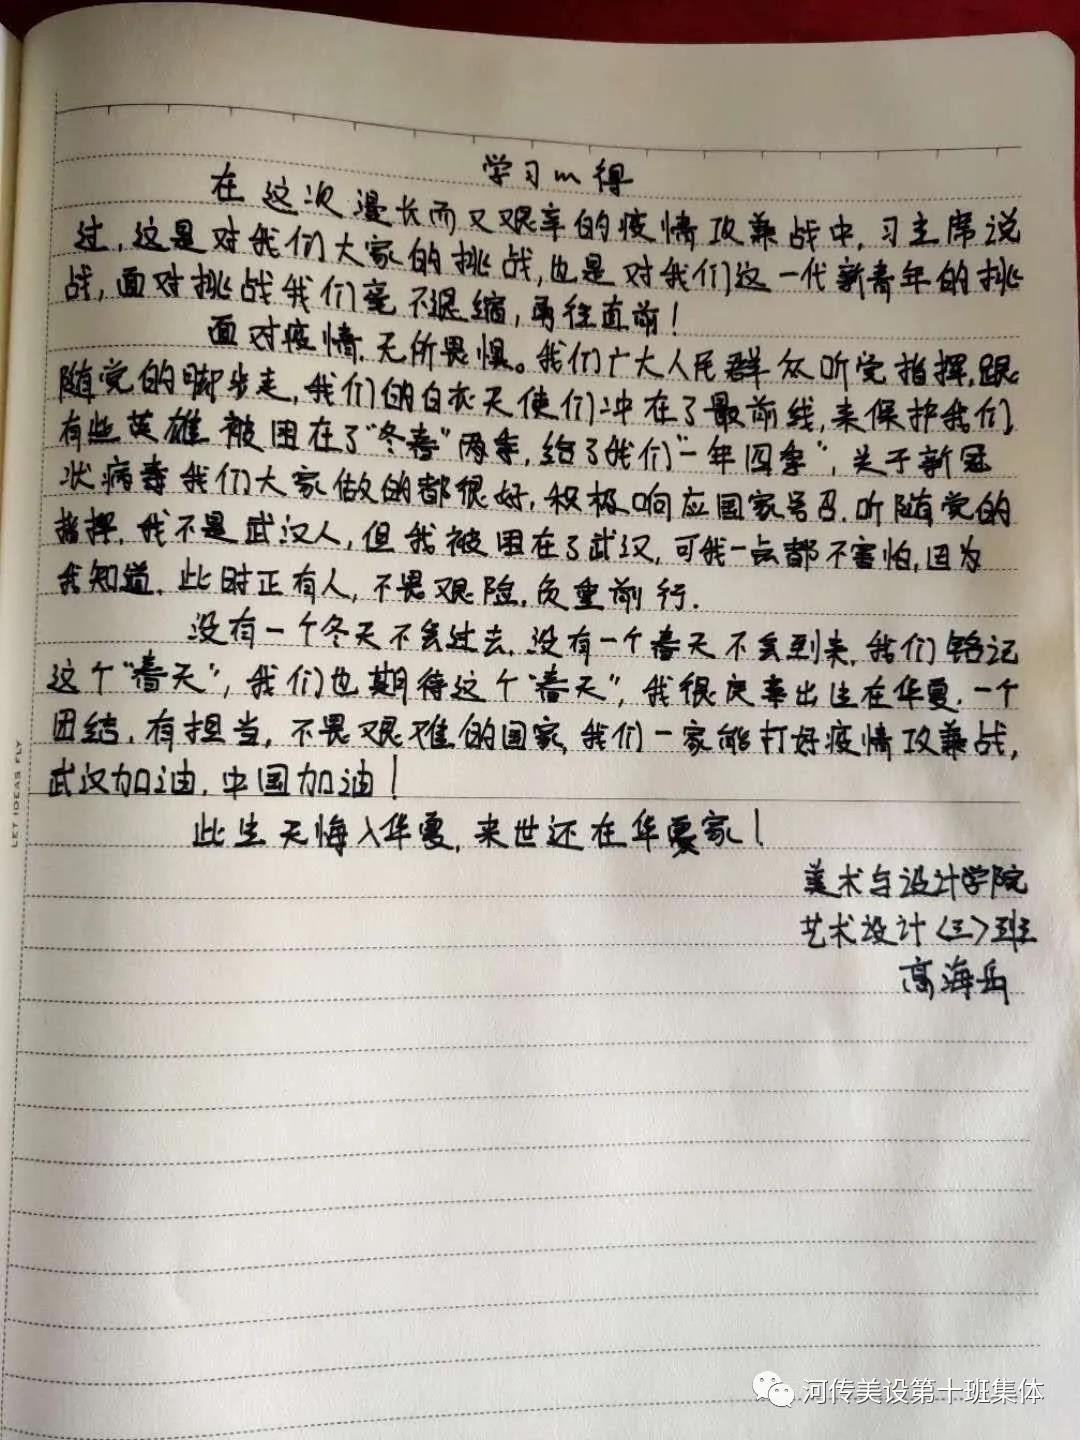 学习心得
在这次漫长而又艰辛的疫情攻兼战中，习主席说
过，这是对我们大家的挑战，也是对我们这一代新青年的挑
战，面对挑战我们毫不退缩，勇往直前！
面对疫情，无所畏惧。我们广大人民群众听党指挥，跟
随党的脚步走，我们的白衣天使们冲在了最前线，来保护我们，
有些英雄被困在了“冬春”两季，给了我们“一年四季”，关于新冠
状病毒我们大家做的都很好，积极响应国家号召，听随党的
指挥，我不是武汉人，但我被困在了武汉，可我一点都不害怕，因为
我知道，此时正有人，不畏艰险，负重前行．
没有一个冬天不会过去，没有一个春天不会到来，我们铭记
这个“春天”，我们也期待这个“春天”，我很庆幸出生在华夏，一个
团结，有担当，不畏艰难的国家，我们一家能打好疫情攻兼战，
武汉加油，中国加油！
此生无悔入华夏，来世还在华夏家！
美术与设计学院
艺术设计〈三〉班
高海岳
LET IDEAS FLY
河传美设第十班集体